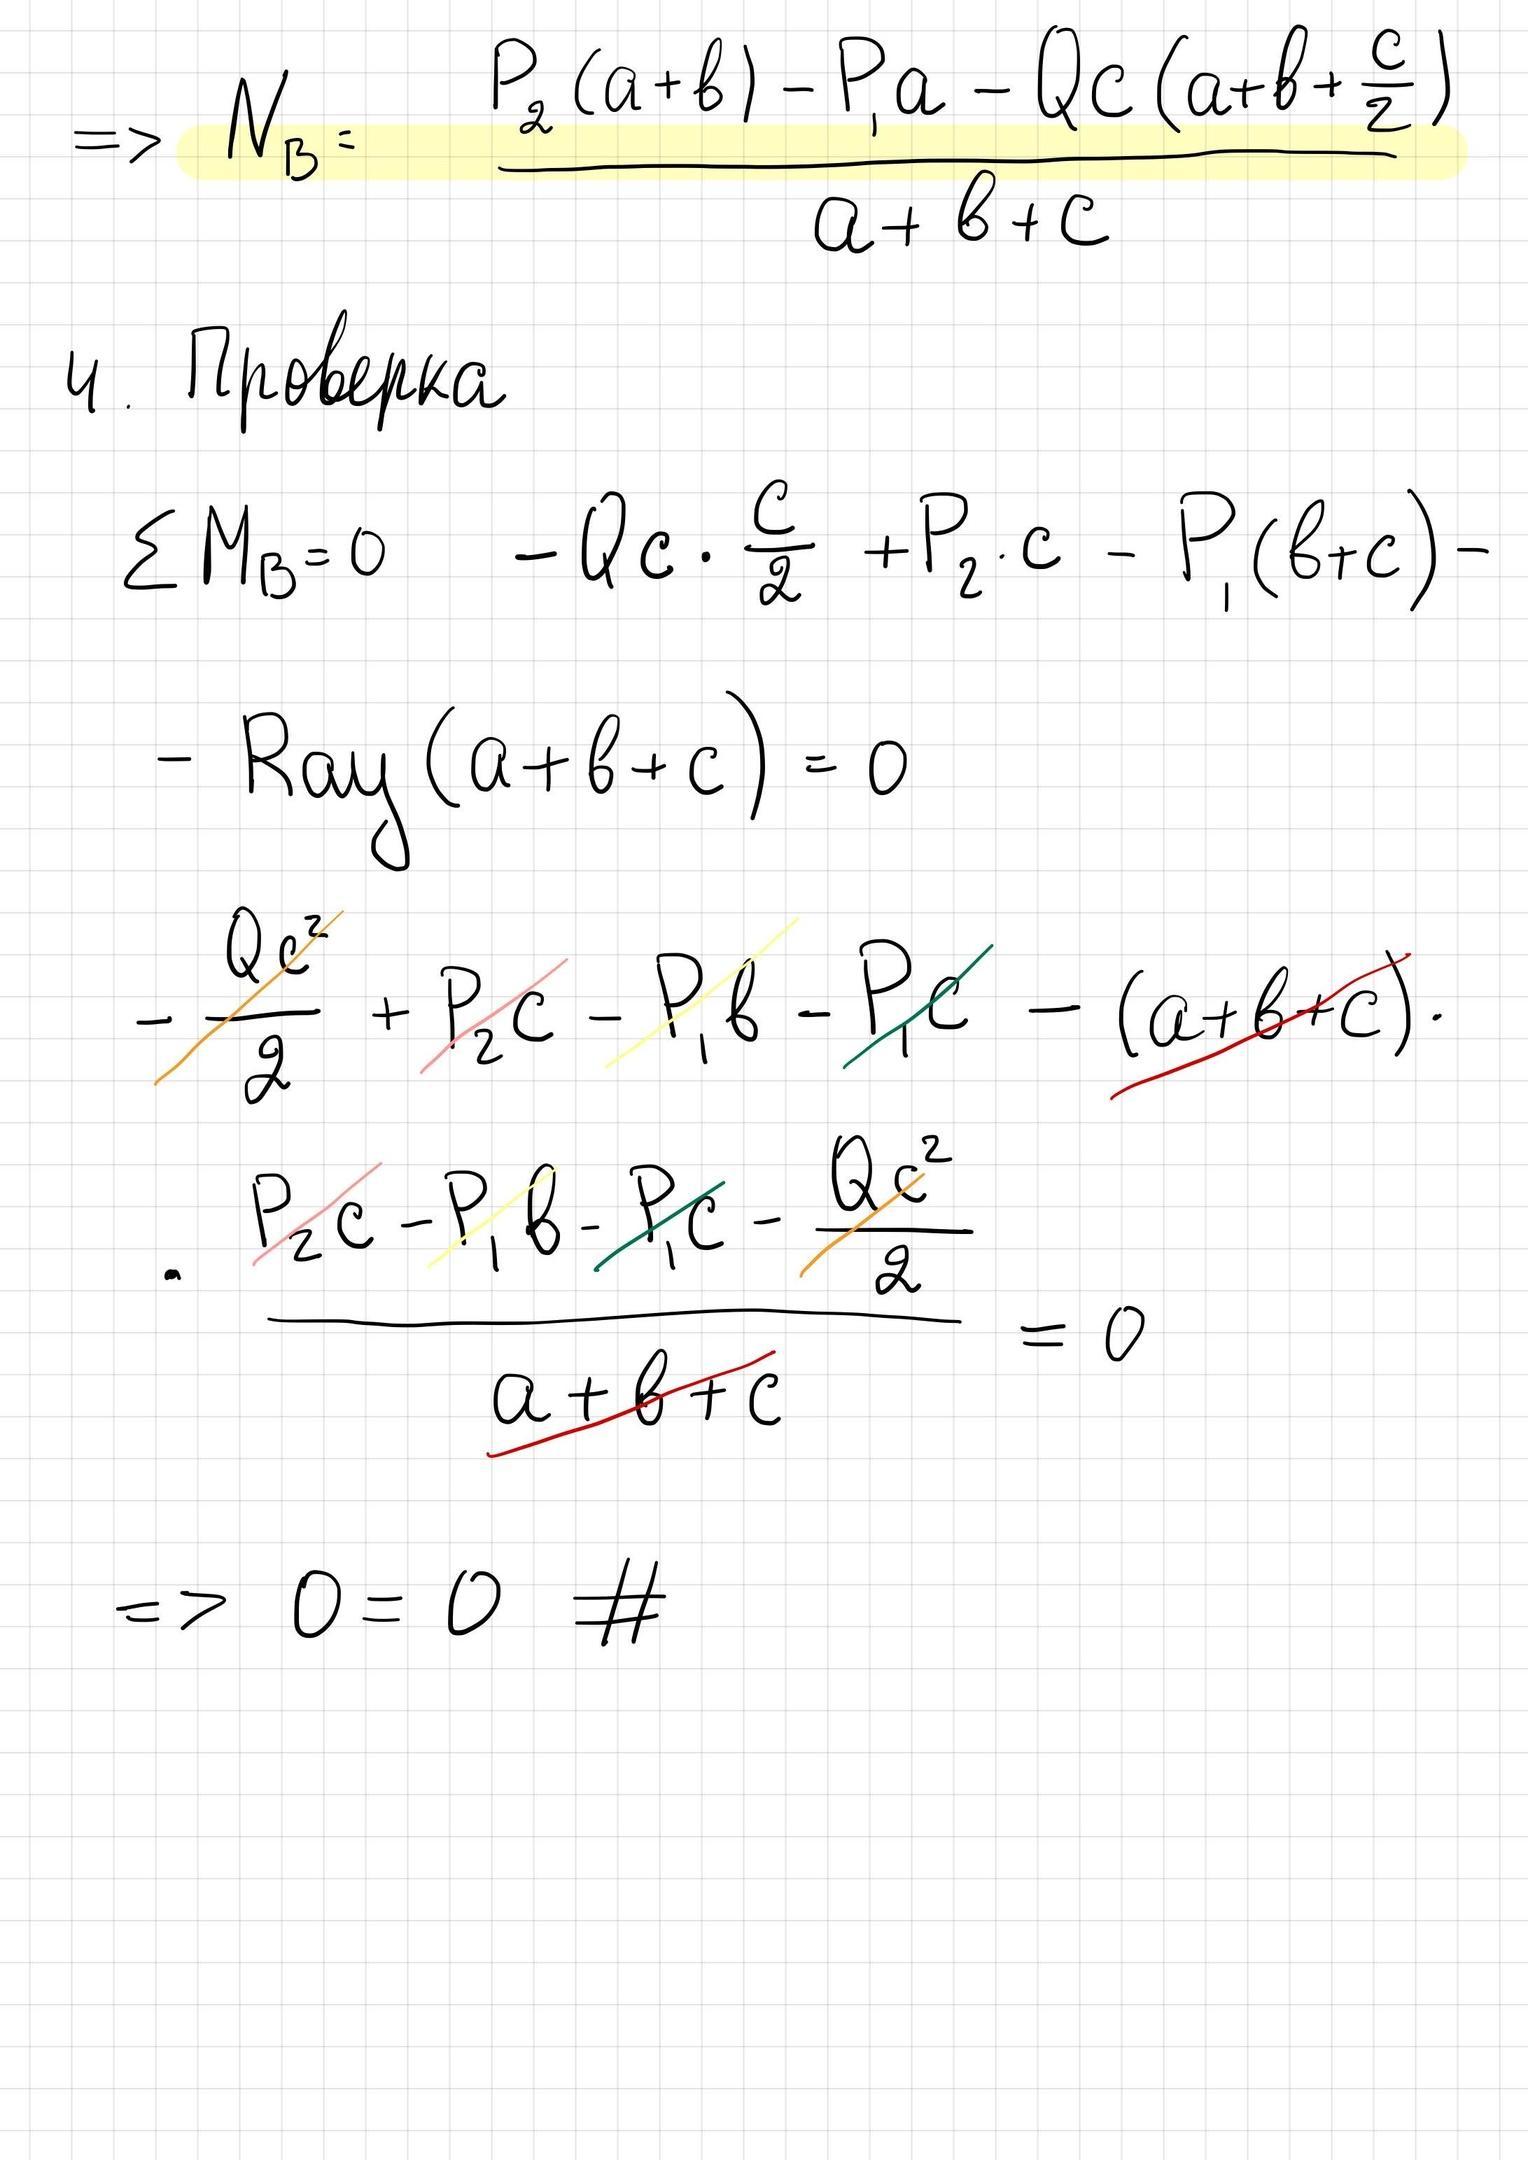 => N_B = (P₂(a+b) - P₁a - Qc(a+b+c/2)) / (a+b+c)
4. Проверка
ΣM_B=0 - Qc · c/2 + P₂·c - P₁(b+c) -
- Ray(a+b+c) = 0
- Qc²/2 + P₂c - P₁b - P₁c - (a+b+c)·
· (P₂c - P₁b - P₁c - Qc²/2) / (a+b+c) = 0
=> 0 = 0 #